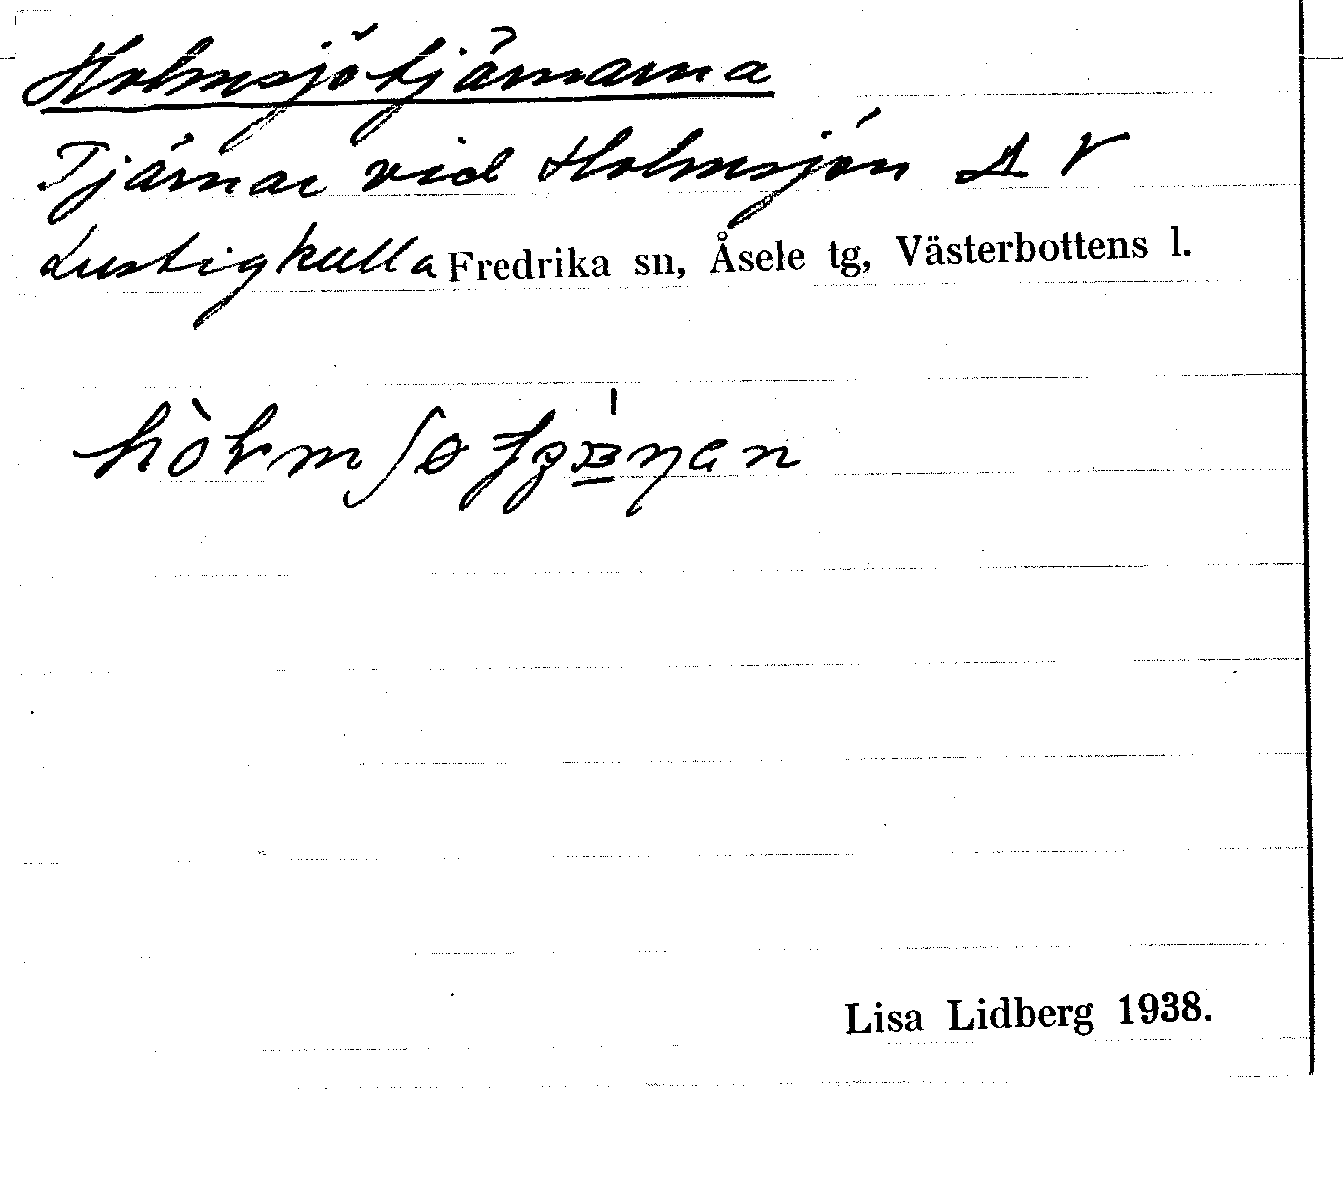 Holmsjötjärnarna
Tjärnar vid Holmsjön S V
Lustigkulla Fredrika sn, Åsele tg, Västerbottens l.
Lisa Lidberg 1938.